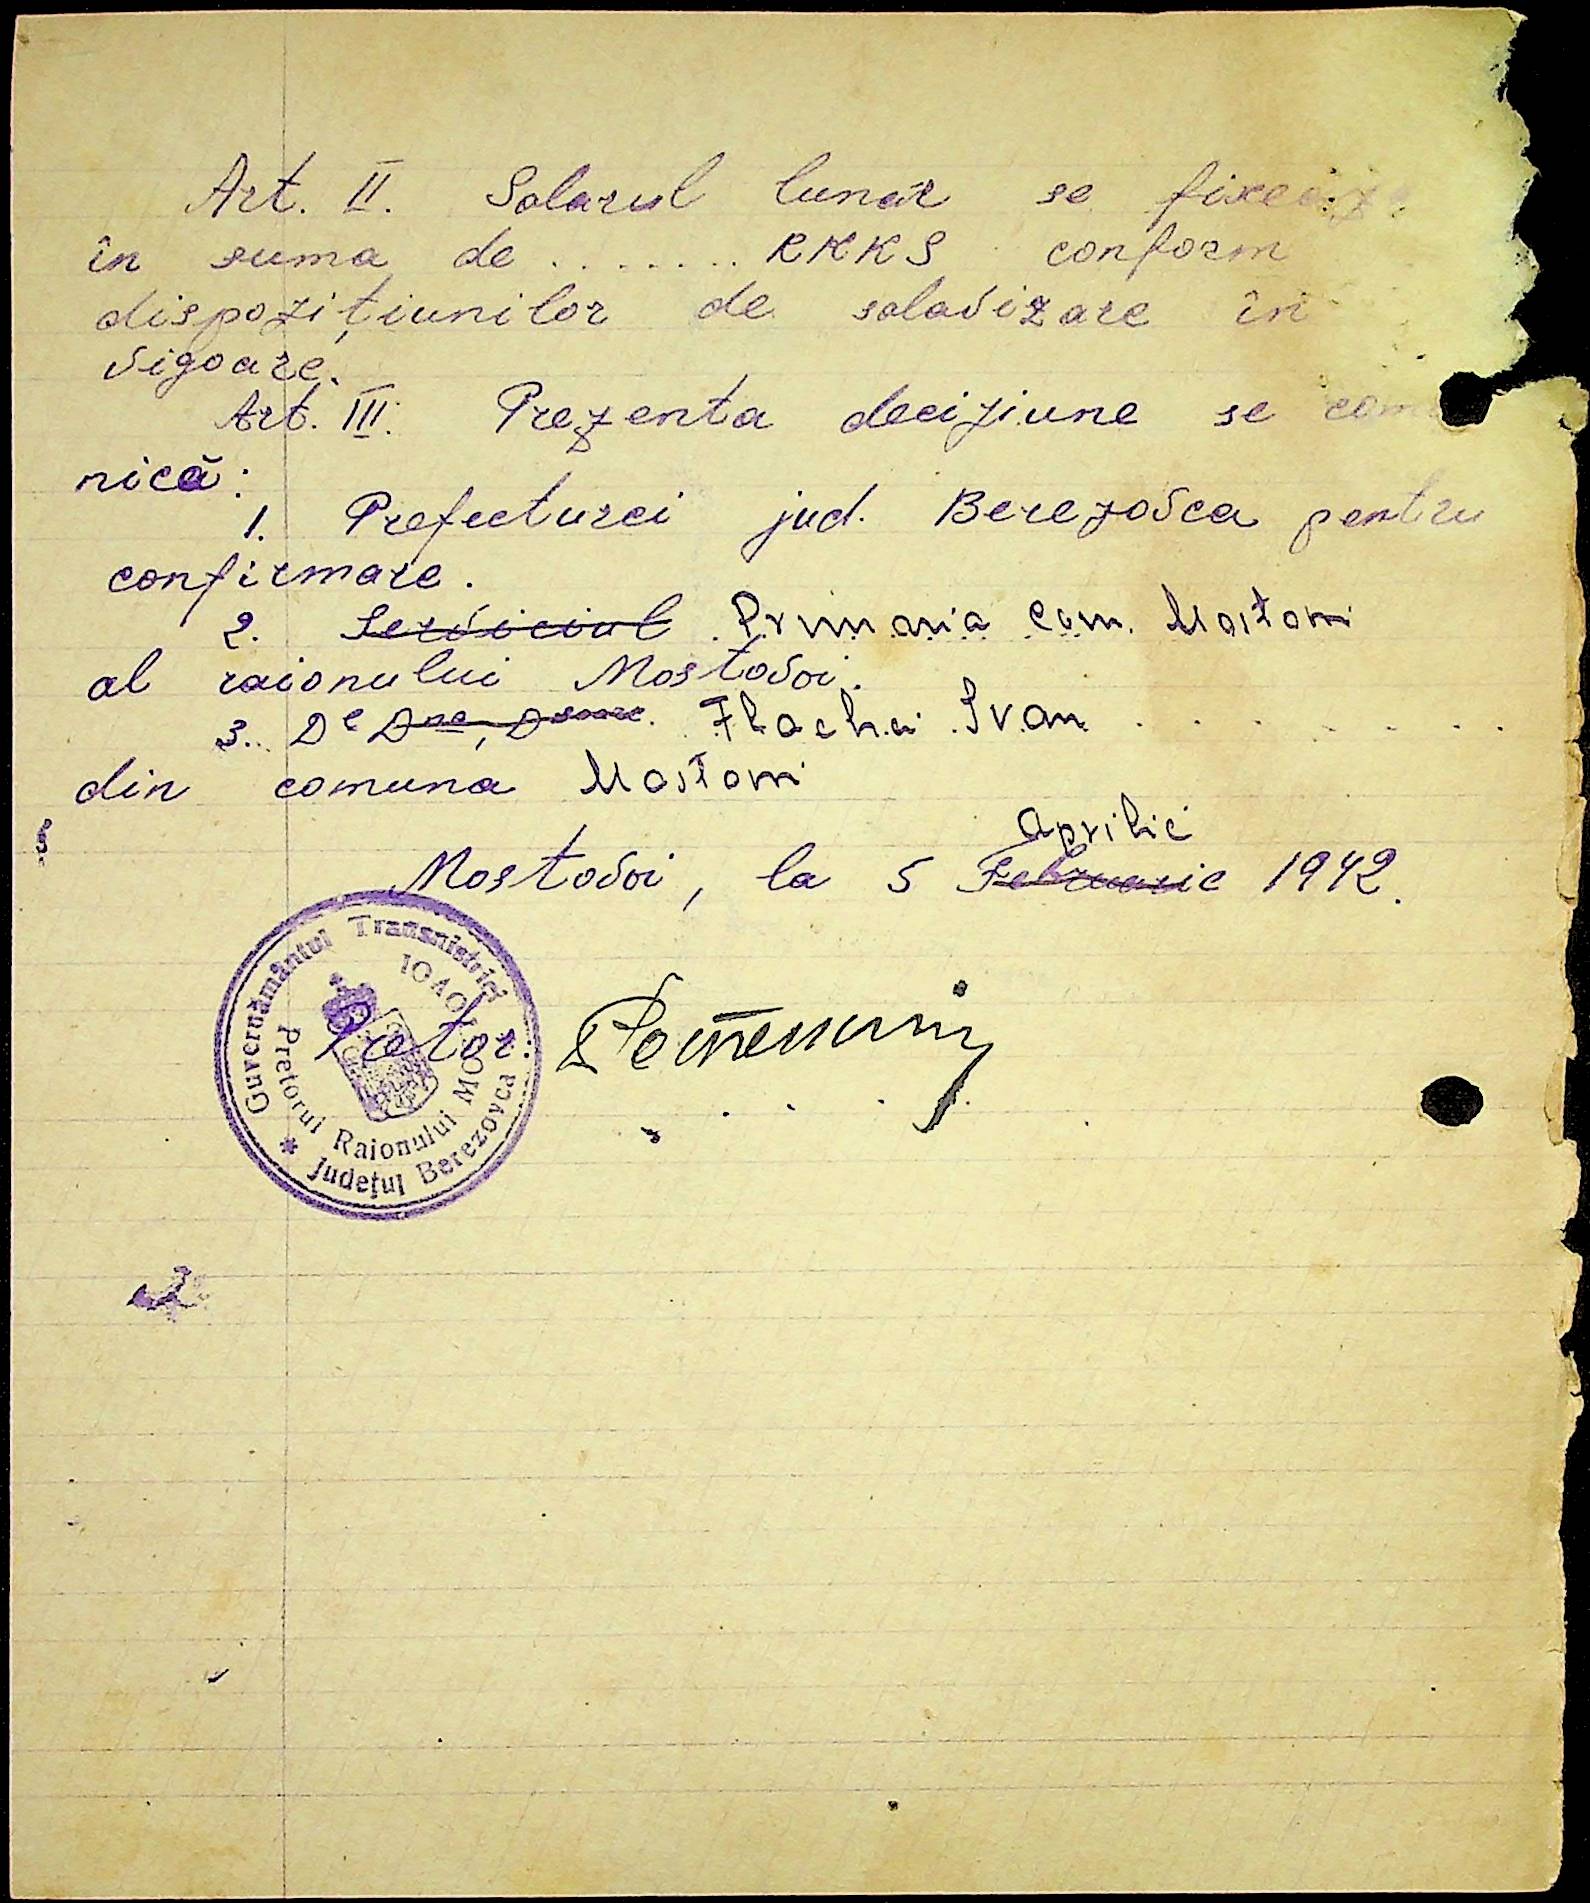 Art. II. Solarul lunar se fixează
în suma de ........ RKKS conform
dispozițiunilor de salarizare în
vigoare.
Art. III. Prezenta deciziune se com
nică:
1. Prefecturei jud. Berezovca pentru
confirmare.
2. Serviciul Primaria Com. Mostovoi
al raionului Mostovoi.
3. Dl Dna, Dsoare. Ivan
din comuna Mostovoi
Aprilie
Mostovoi, la 5 Februarie 1942.
Guvernământul Transnistriei
Pretorul Raionului MOSTOVOI
* Județul Berezovca
Pretor: